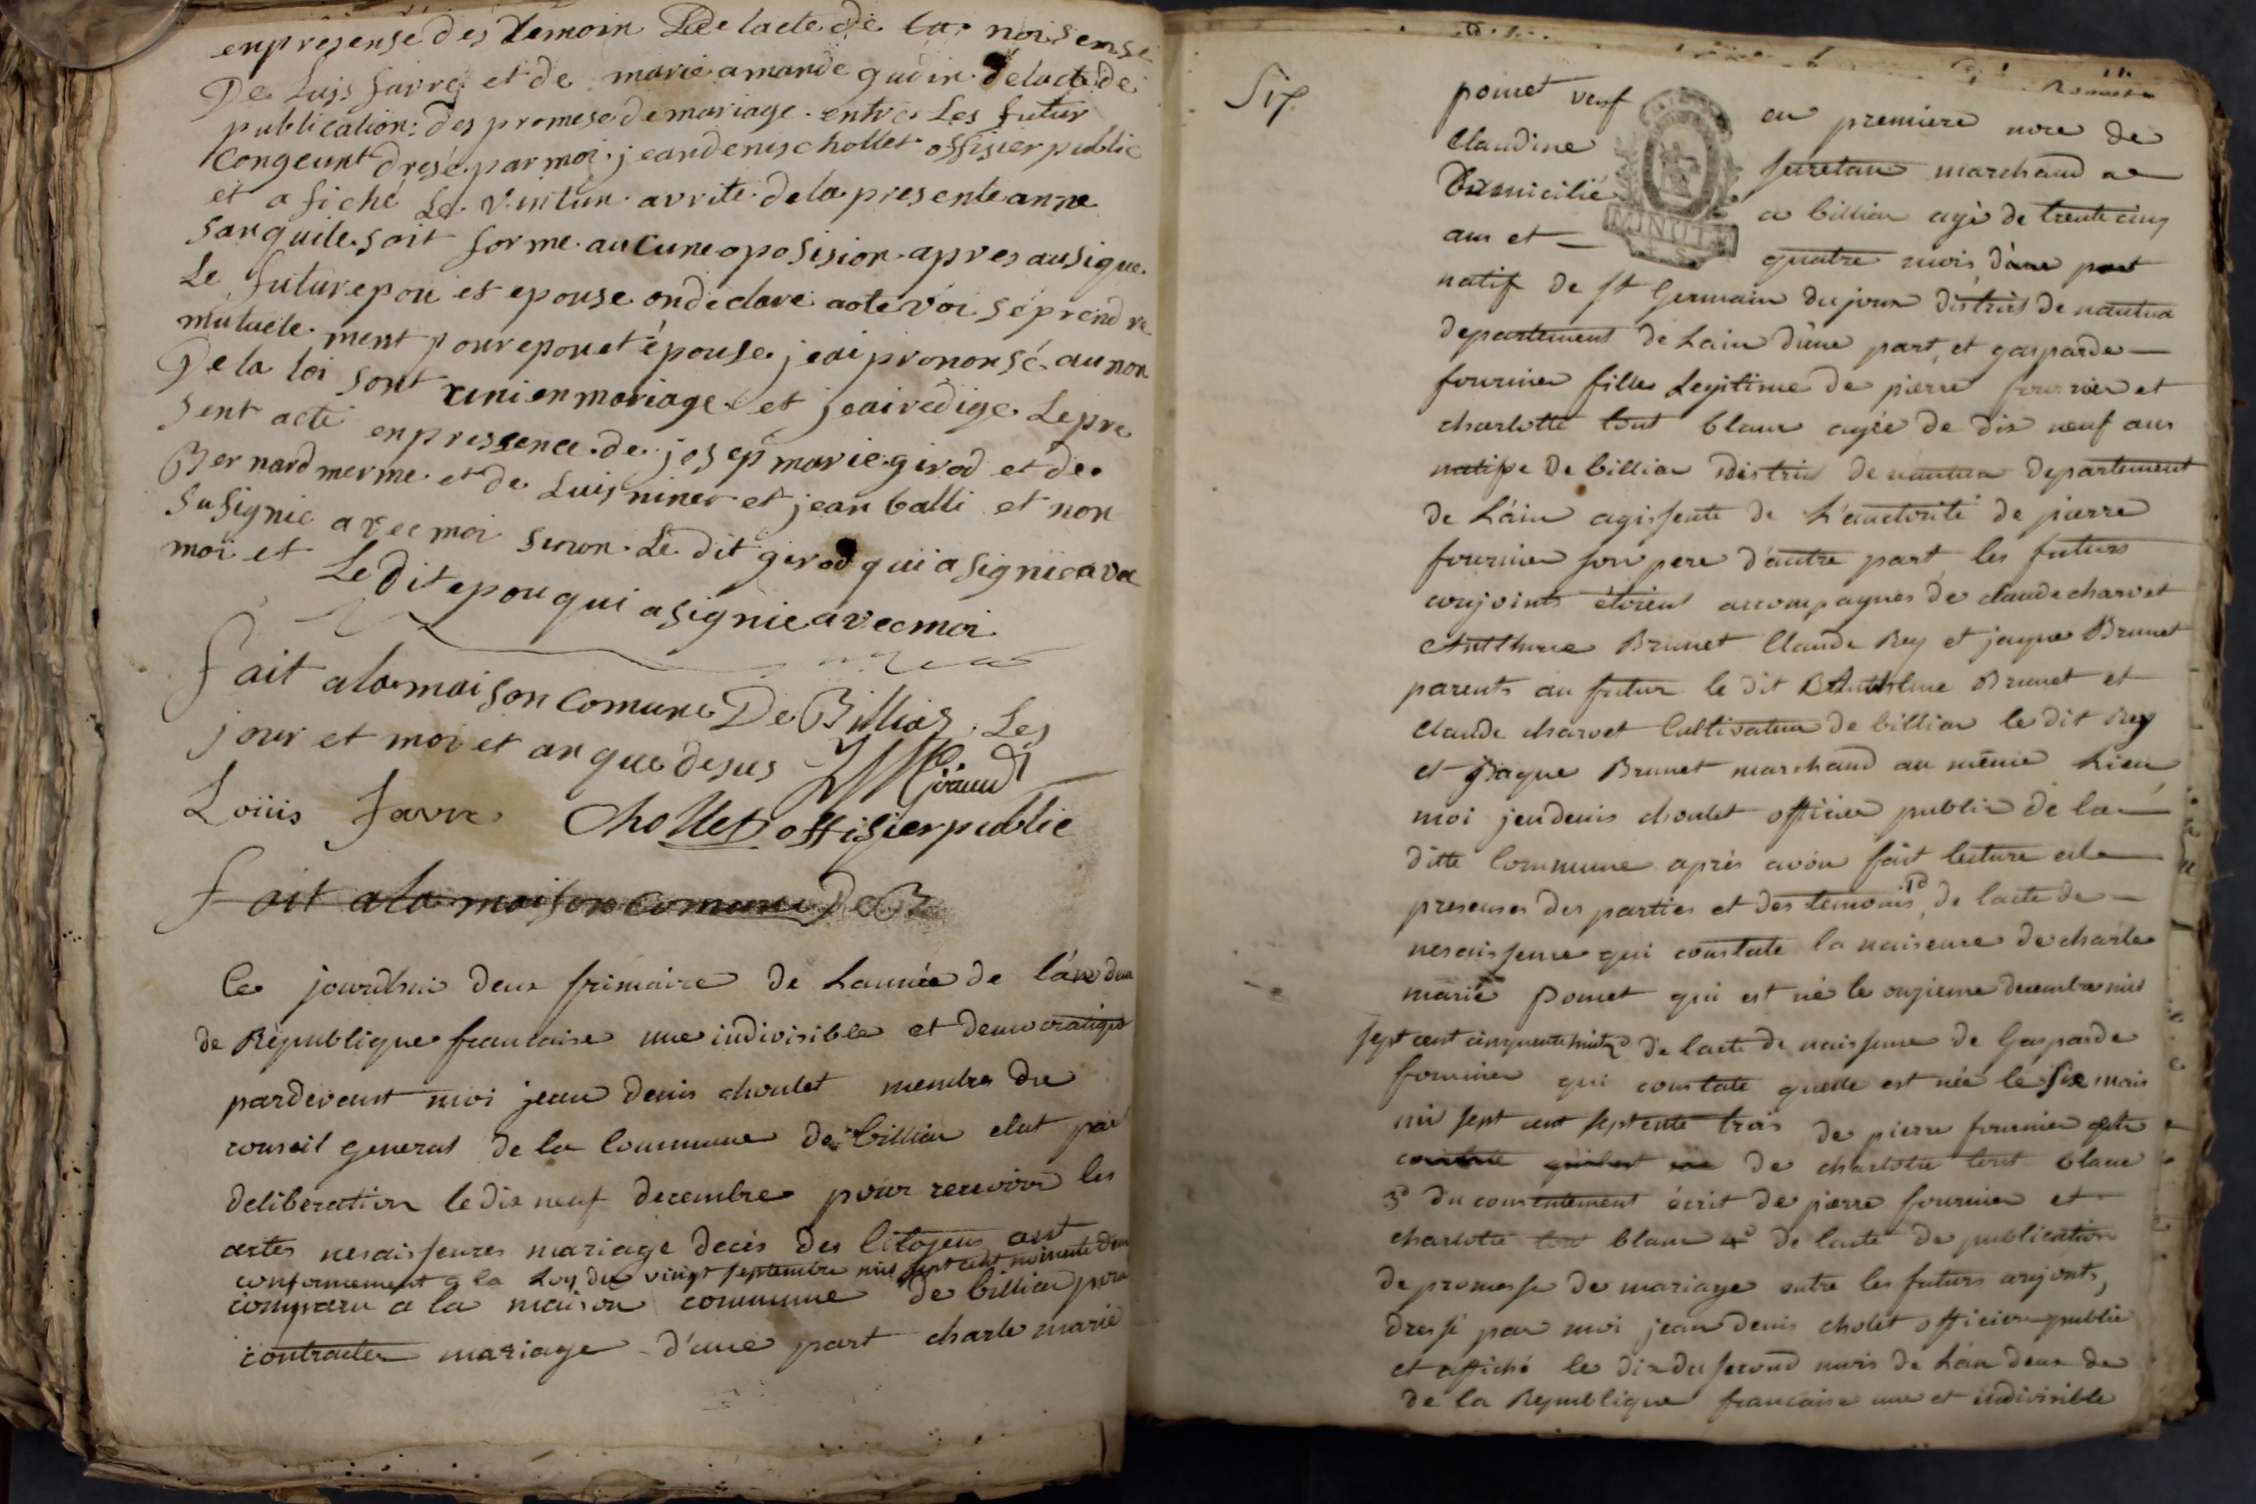 enpresense des temoin De lacte de la noisense
De Luis favre et de marie amande gudin de lacte de
publication: des promese de mariage entre Les futur
Congeunt dresé par moi jeandenis chollet offisier public
et afiché Le vintun avrile dela presente anne
sanquile soit forme aucune oposision apres ausique
Le future pou et epouse on declaré aotevoi se prendre
mutuele ment pour epou et épouse jeai prononsé au non
De la loi sont uni en mariage et jeai redige Le pre
sent acte en pressence de josep marie girod et de
Bernard merme et de Luis niner et jean balli et non
susignie avec moi sinon Le dit girod qui a signie avec
moi et Le dit epou qui a signie avec moi
fait a la maison comune De Billias Les
jour et moi et an que desus
Loüis favre Chollet offisier public
fait a la maison comune De B
Ce jourdhui deux frimaire de Lannée de lan deux
de République francaise une indivisible et democratique
pardevant moi jean denis choulet membre du
conseil general de la Commune de billiat elut par
deliberation le dix neuf decembre pour recevoir les
actes nesaissences mariage decès des Citoyens ont
conformement a la Loy du vingt septembre mil sept cent nonente deux
comparu a la maison commune de billiat pour
contracter mariage d'une part charle marie
Six
pomet veuf en premiere noce de
Claudine marchand
Domicilié a billiat agé de trente cinq
ans et quatre mois d'une part
natif de st Germain du joux district de nantua
departement de Lain d'une part, et gasparde
fournier fille Legitime de pierre fournier et
charlotte tout blanc agée de dix neuf ans
natife de billiat district de nantua departement
de L'ain agissente de L'auctorité de pierre
fournier son pere d'autre part les futurs
conjoints étoient accompagnes de claude charvet
Anthelme Brunet Claude Rey et jaque Brunet
parents au futur le dit Anthelme Brunet et
Claude charvet Cultivateur de billiat le dit Rey
et jaque Brunet marchand au même Lieu
moi jendenis choulet officier public de la
ditte Commune après avoir fait lecture en
presences des parties et des temoins 1° de lacte de
nesaissence qui constate la naisence de charle
marie Pomet qui est né le onzieme decembre mil
sept cent cinquente huit 2° de lacte de naissence de Gasparde
fournier qui constate quelle est née le six mars
mil sept cent septente trois de pierre fournier et
de charlotte tout blanc
3° du consentement écrit de pierre fournier et
charlotte tout blanc 4° de lacte de publication
de promesse de mariage entre les futurs conjonts,
dressé par moi jean denis cholet officier public
et affiché le dix du second mois de Lan deux de
de la Republique francaise une et indivisible